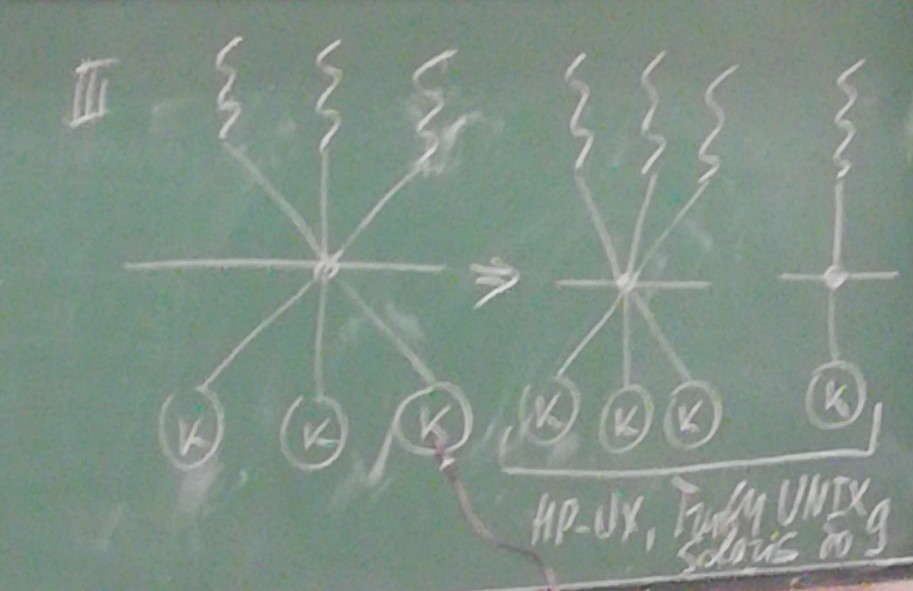 III
K K K K K K K
HP-UX, Tru64 UNIX,
Solaris до 9